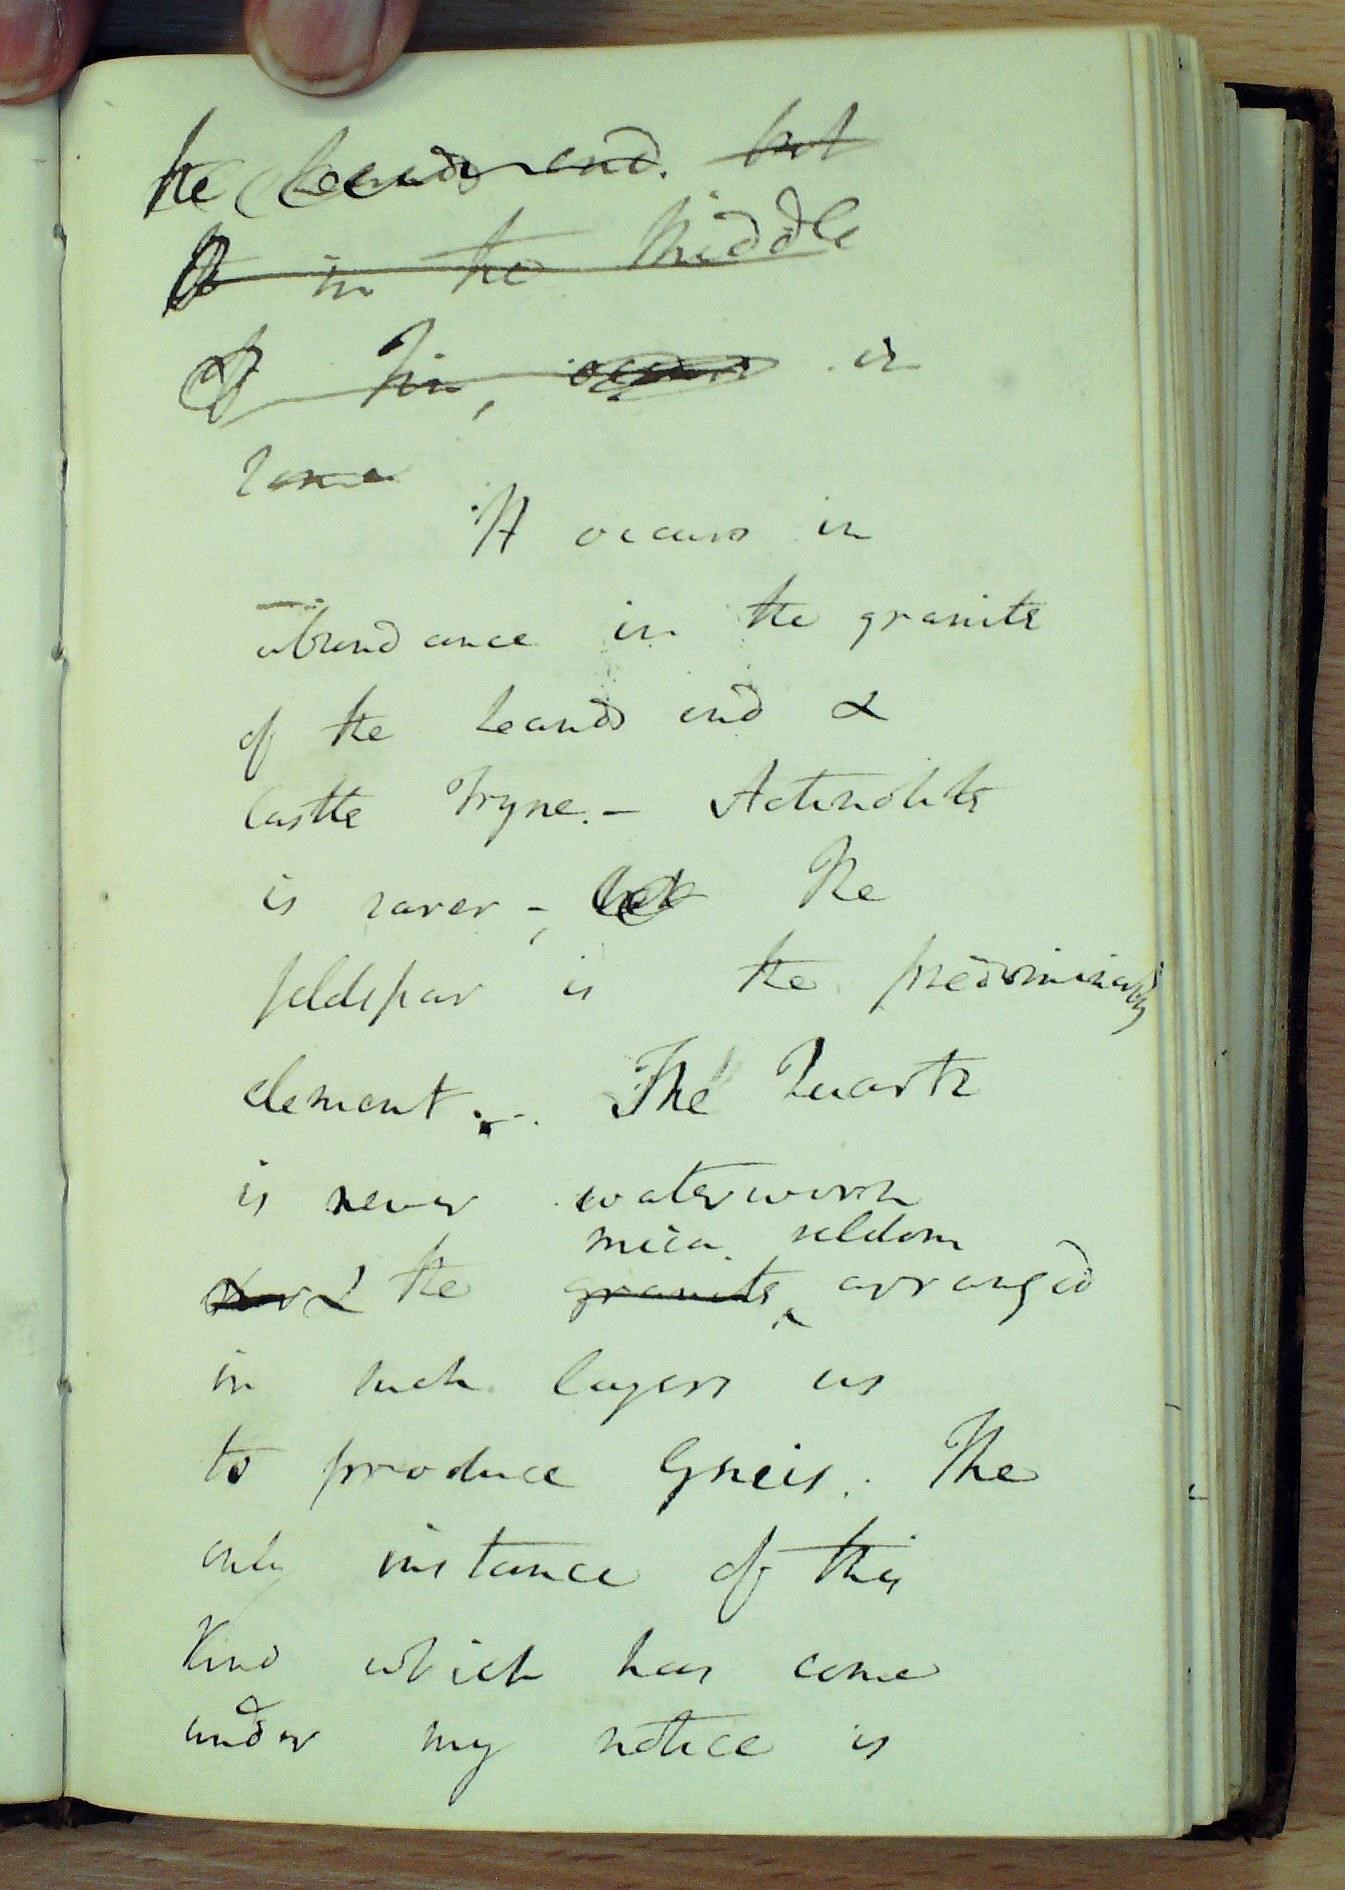 the Leands end. but
in the middle
of tin, occurs is
some
It occurs in
abundance in the granite
of the Leands end &
Castle Tryne. - Actinolite
is rarer -, but The
feldspar is the predominating
element. - . The Quartz
is never waterworn
mica seldom
& the granite arranged
in such layers as
to produce Gneis. The
only instance of this
Kind which has come
under my notice is